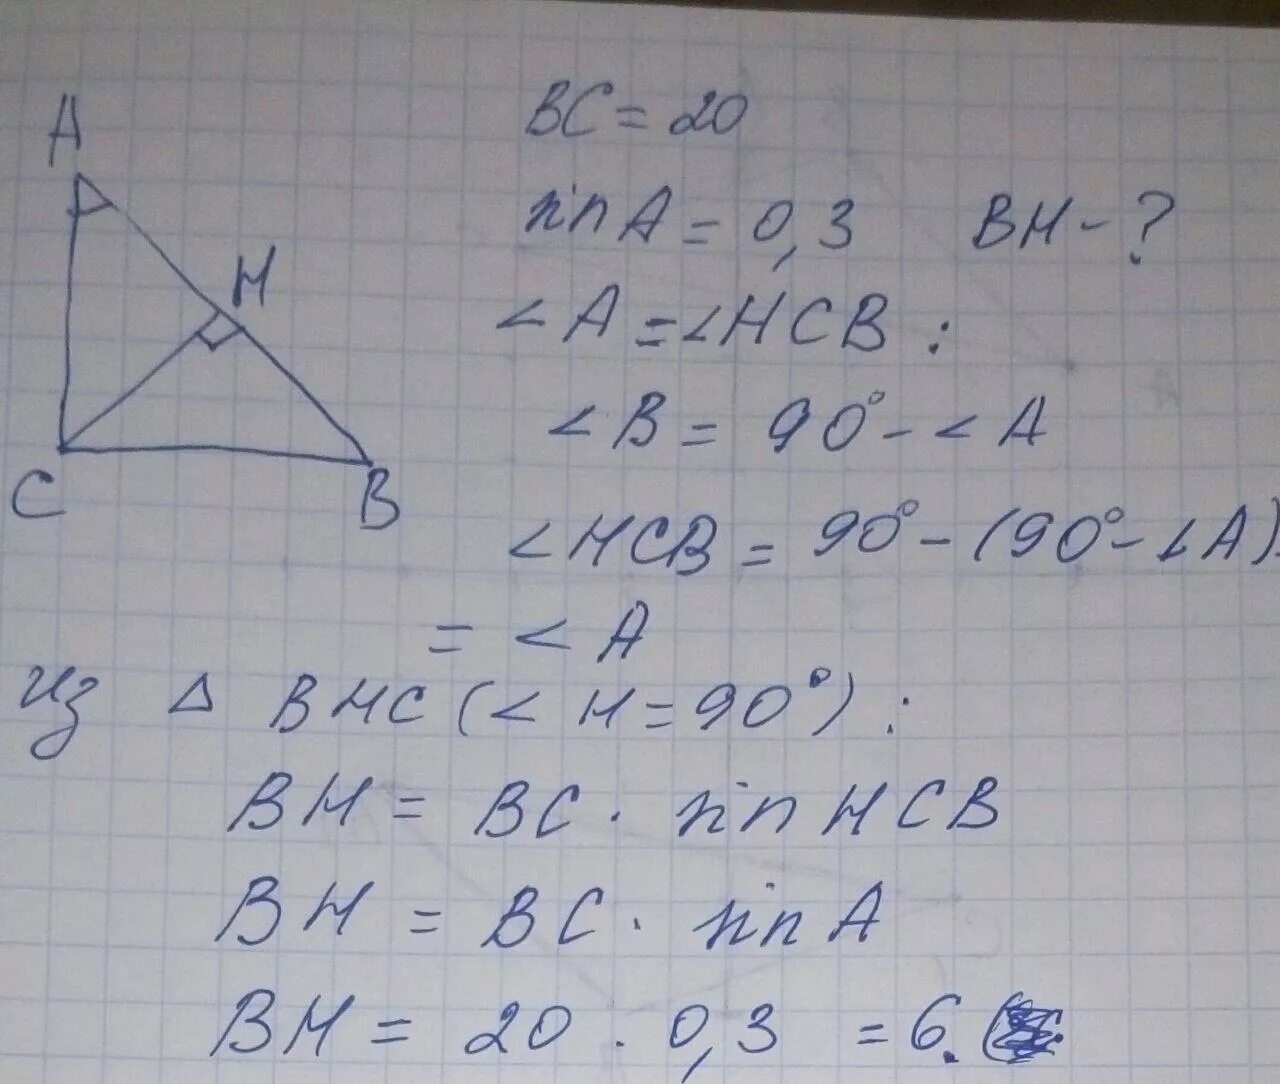 A
H
C
B
BC = 20
sin A = 0,3 BH - ?
∠A = ∠HCB :
∠B = 90° - ∠A
∠HCB = 90° - (90° - ∠A)
= ∠A
из △ BHC (∠H = 90°) :
BH = BC · sin HCB
BH = BC · sin A
BH = 20 · 0,3 = 6.